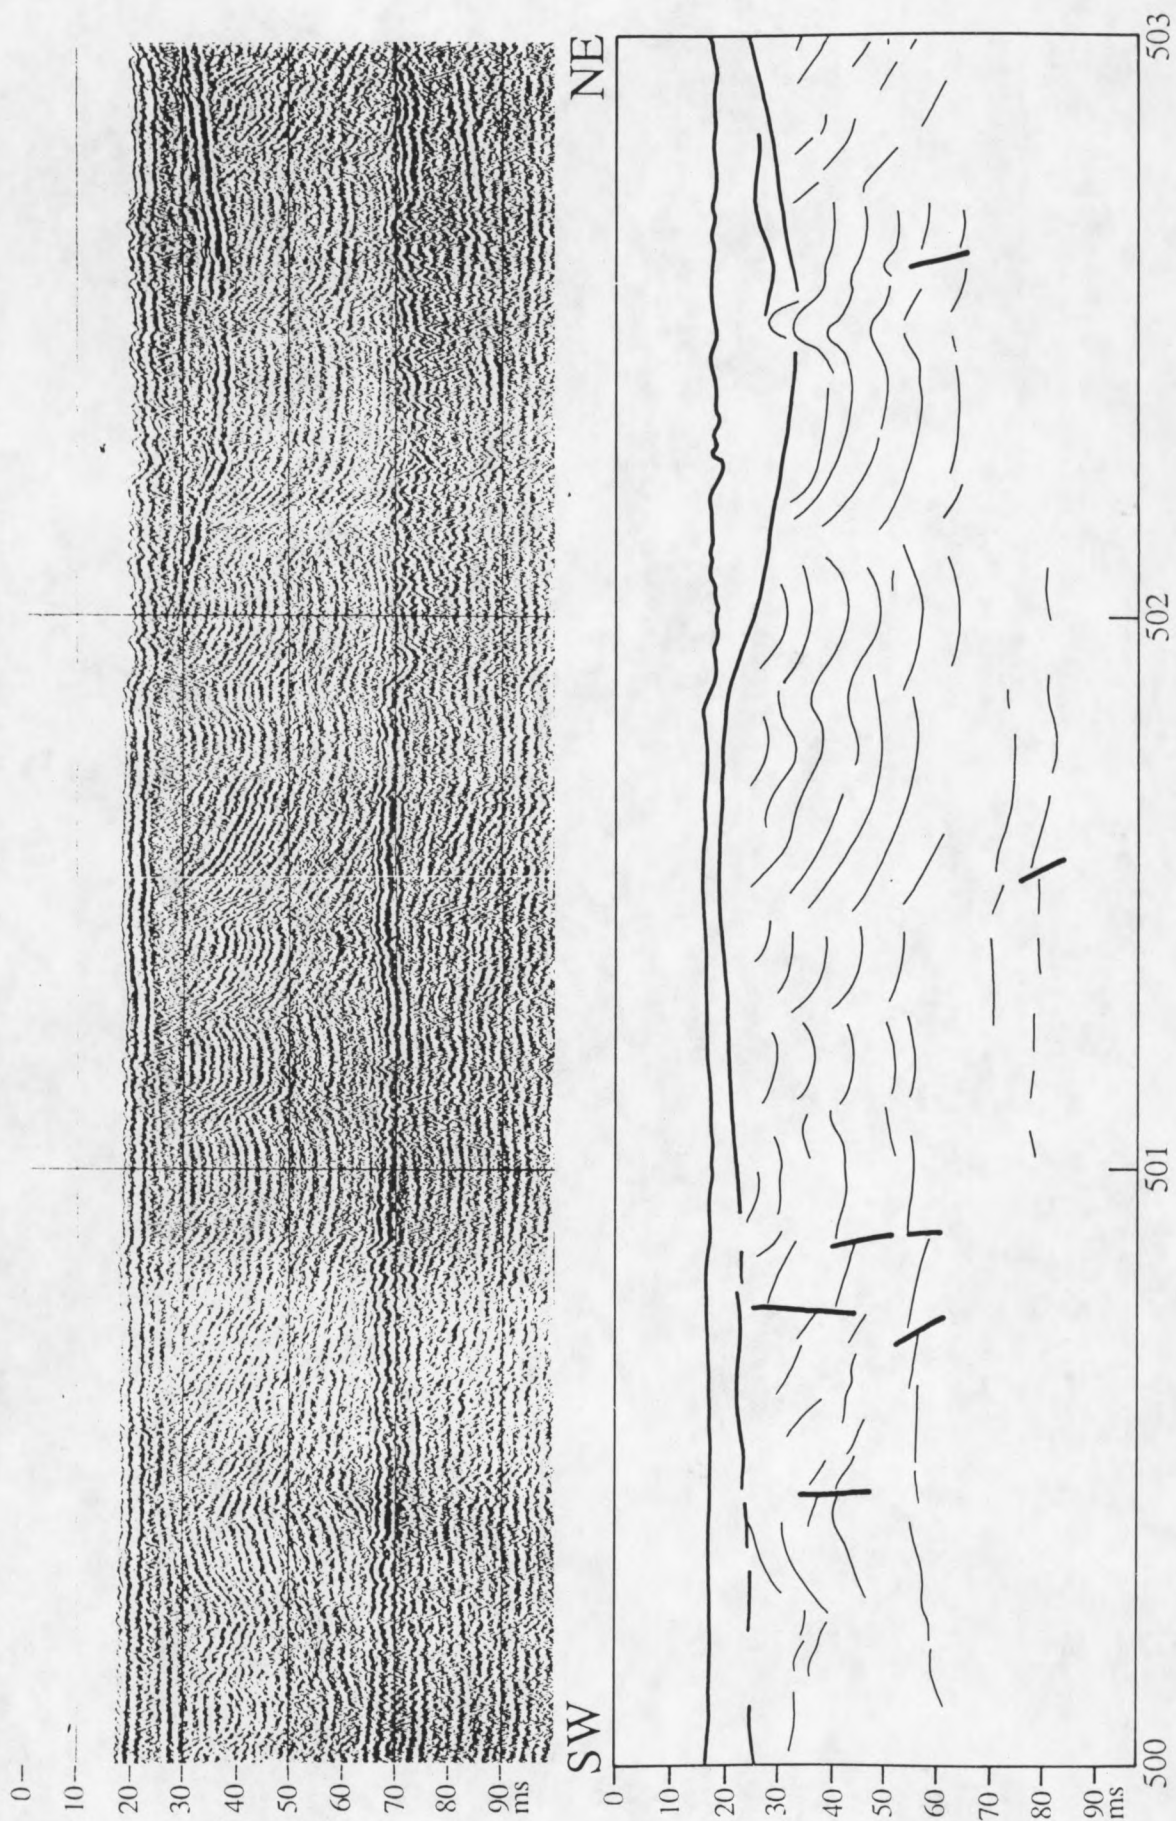 0
10
20
30
40
50
60
70
80
90
ms
SW
NE
0
10
20
30
40
50
60
70
80
90
ms
500
501
502
503